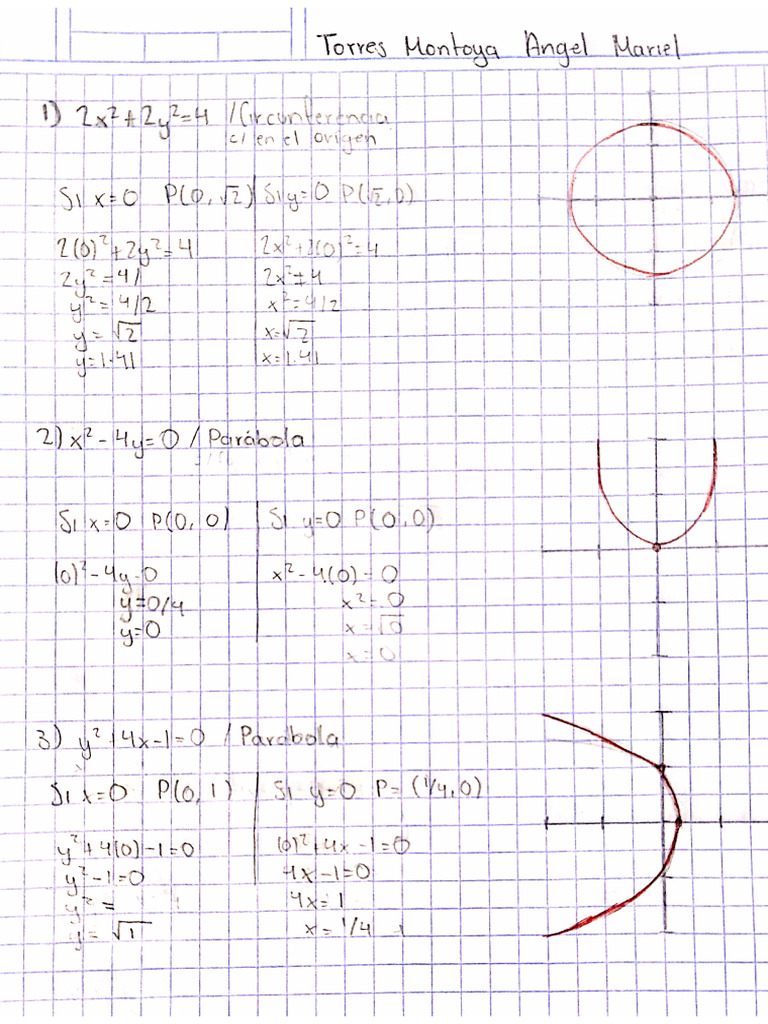 Torres Montoya Angel Mariel
1) 2x²+2y²=4 /Circunferencia
c/ en el origen
Si x=0 P(0,√2) | Si y=0 P(√2,0)
2(0)²+2y²=4 2x²+2(0)²=4
2y²=4/ 2x²=4
y²=4/2 x²=4/2
y=√2 x=√2
y=1.41 x=1.41
2) x²-4y=0 / Parábola
Si x=0 P(0,0) | Si y=0 P(0,0)
(0)²-4y=0 x²-4(0)=0
y=0/4 x²=0
y=0 x=√0
x=0
3) y²+4x-1=0 / Parabola
Si x=0 P(0,1) | Si y=0 P=(1/4,0)
y²+4(0)-1=0 (0)²+4x-1=0
y²-1=0 4x-1=0
y²= 4x=1
y=√1 x=1/4